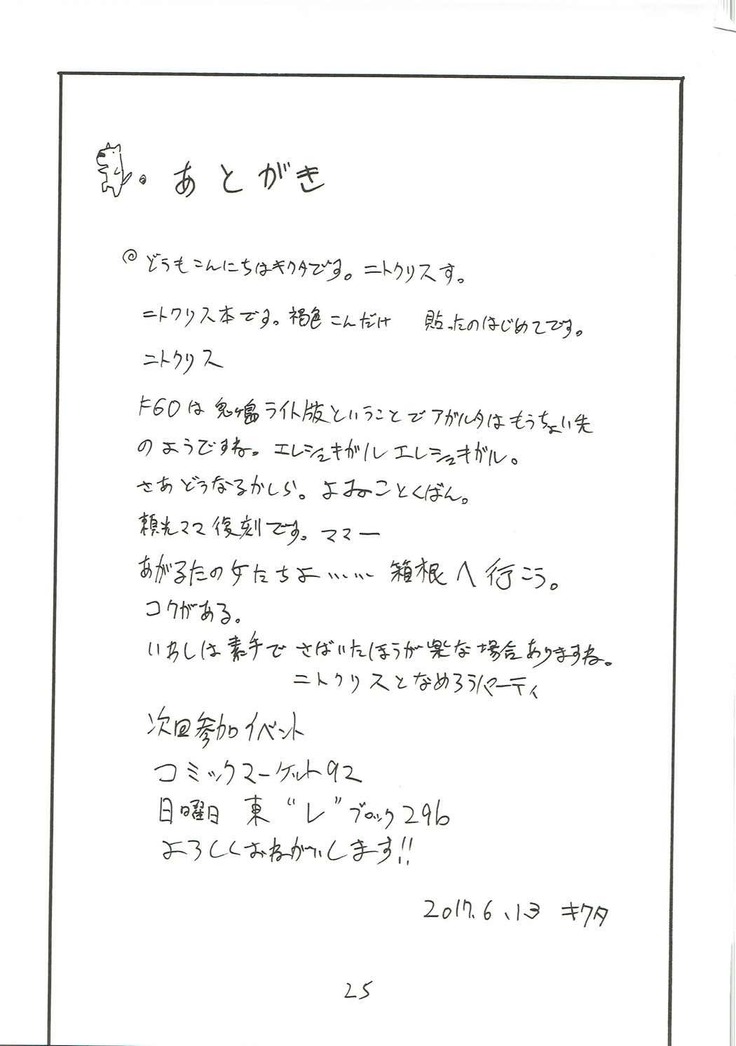 あとがき
どうもこんにちはキクタです。ニトクリスす。
ニトクリス本です。褐色こんだけ 貼ったのはじめてです。
ニトクリス
FGOは鬼ヶ島ライト版ということでアガルタはもうちょい先
のようですね。エレシュキガル エレシュキガル。
さあどうなるかしら。よみことくばん。
頼光ママ復刻です。ママー
あがるたの女たちよ…… 箱根へ行こう。
コクがある。
いわしは素手でさばいたほうが楽な場合ありますね。
ニトクリスとなめろうパーティ
次回参加イベント
コミックマーケット92
日曜日 東 “レ” ブロック29b
よろしくおねがいします!!
2017.6.13 キクタ
25